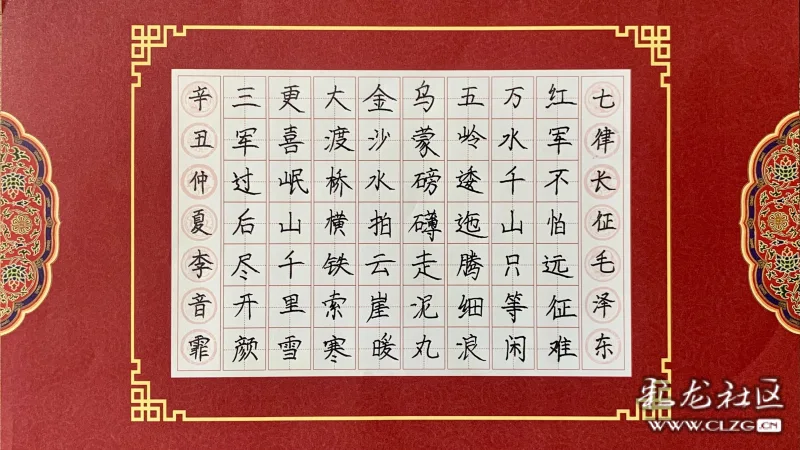 七律长征毛泽东
红军不怕远征难
万水千山只等闲
五岭逶迤腾细浪
乌蒙磅礴走泥丸
金沙水拍云崖暖
大渡桥横铁索寒
更喜岷山千里雪
三军过后尽开颜
辛丑仲夏李音霏
彩龙社区
WWW.CLZG.CN